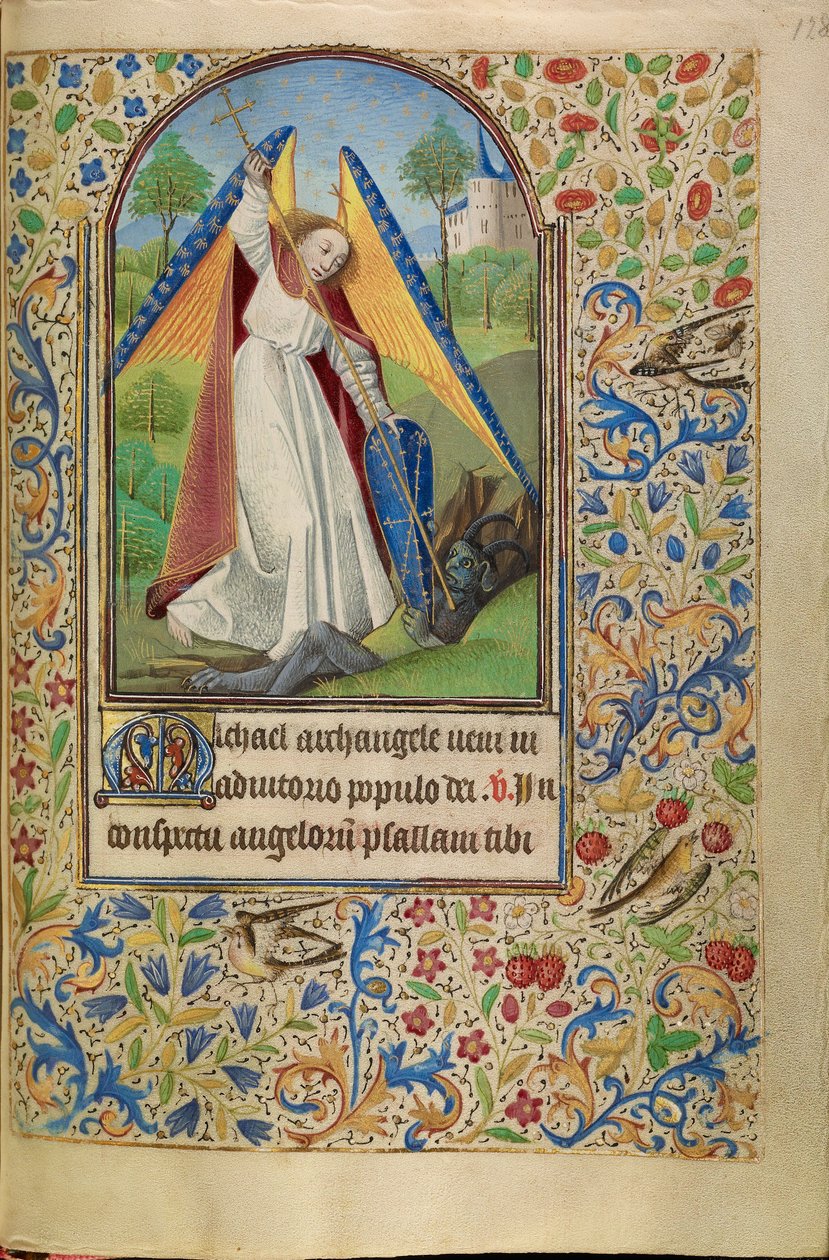 128
Michael archangele ueni in
adiutorio populo dei . V. In
conspectu angeloru̅ psallam tibi